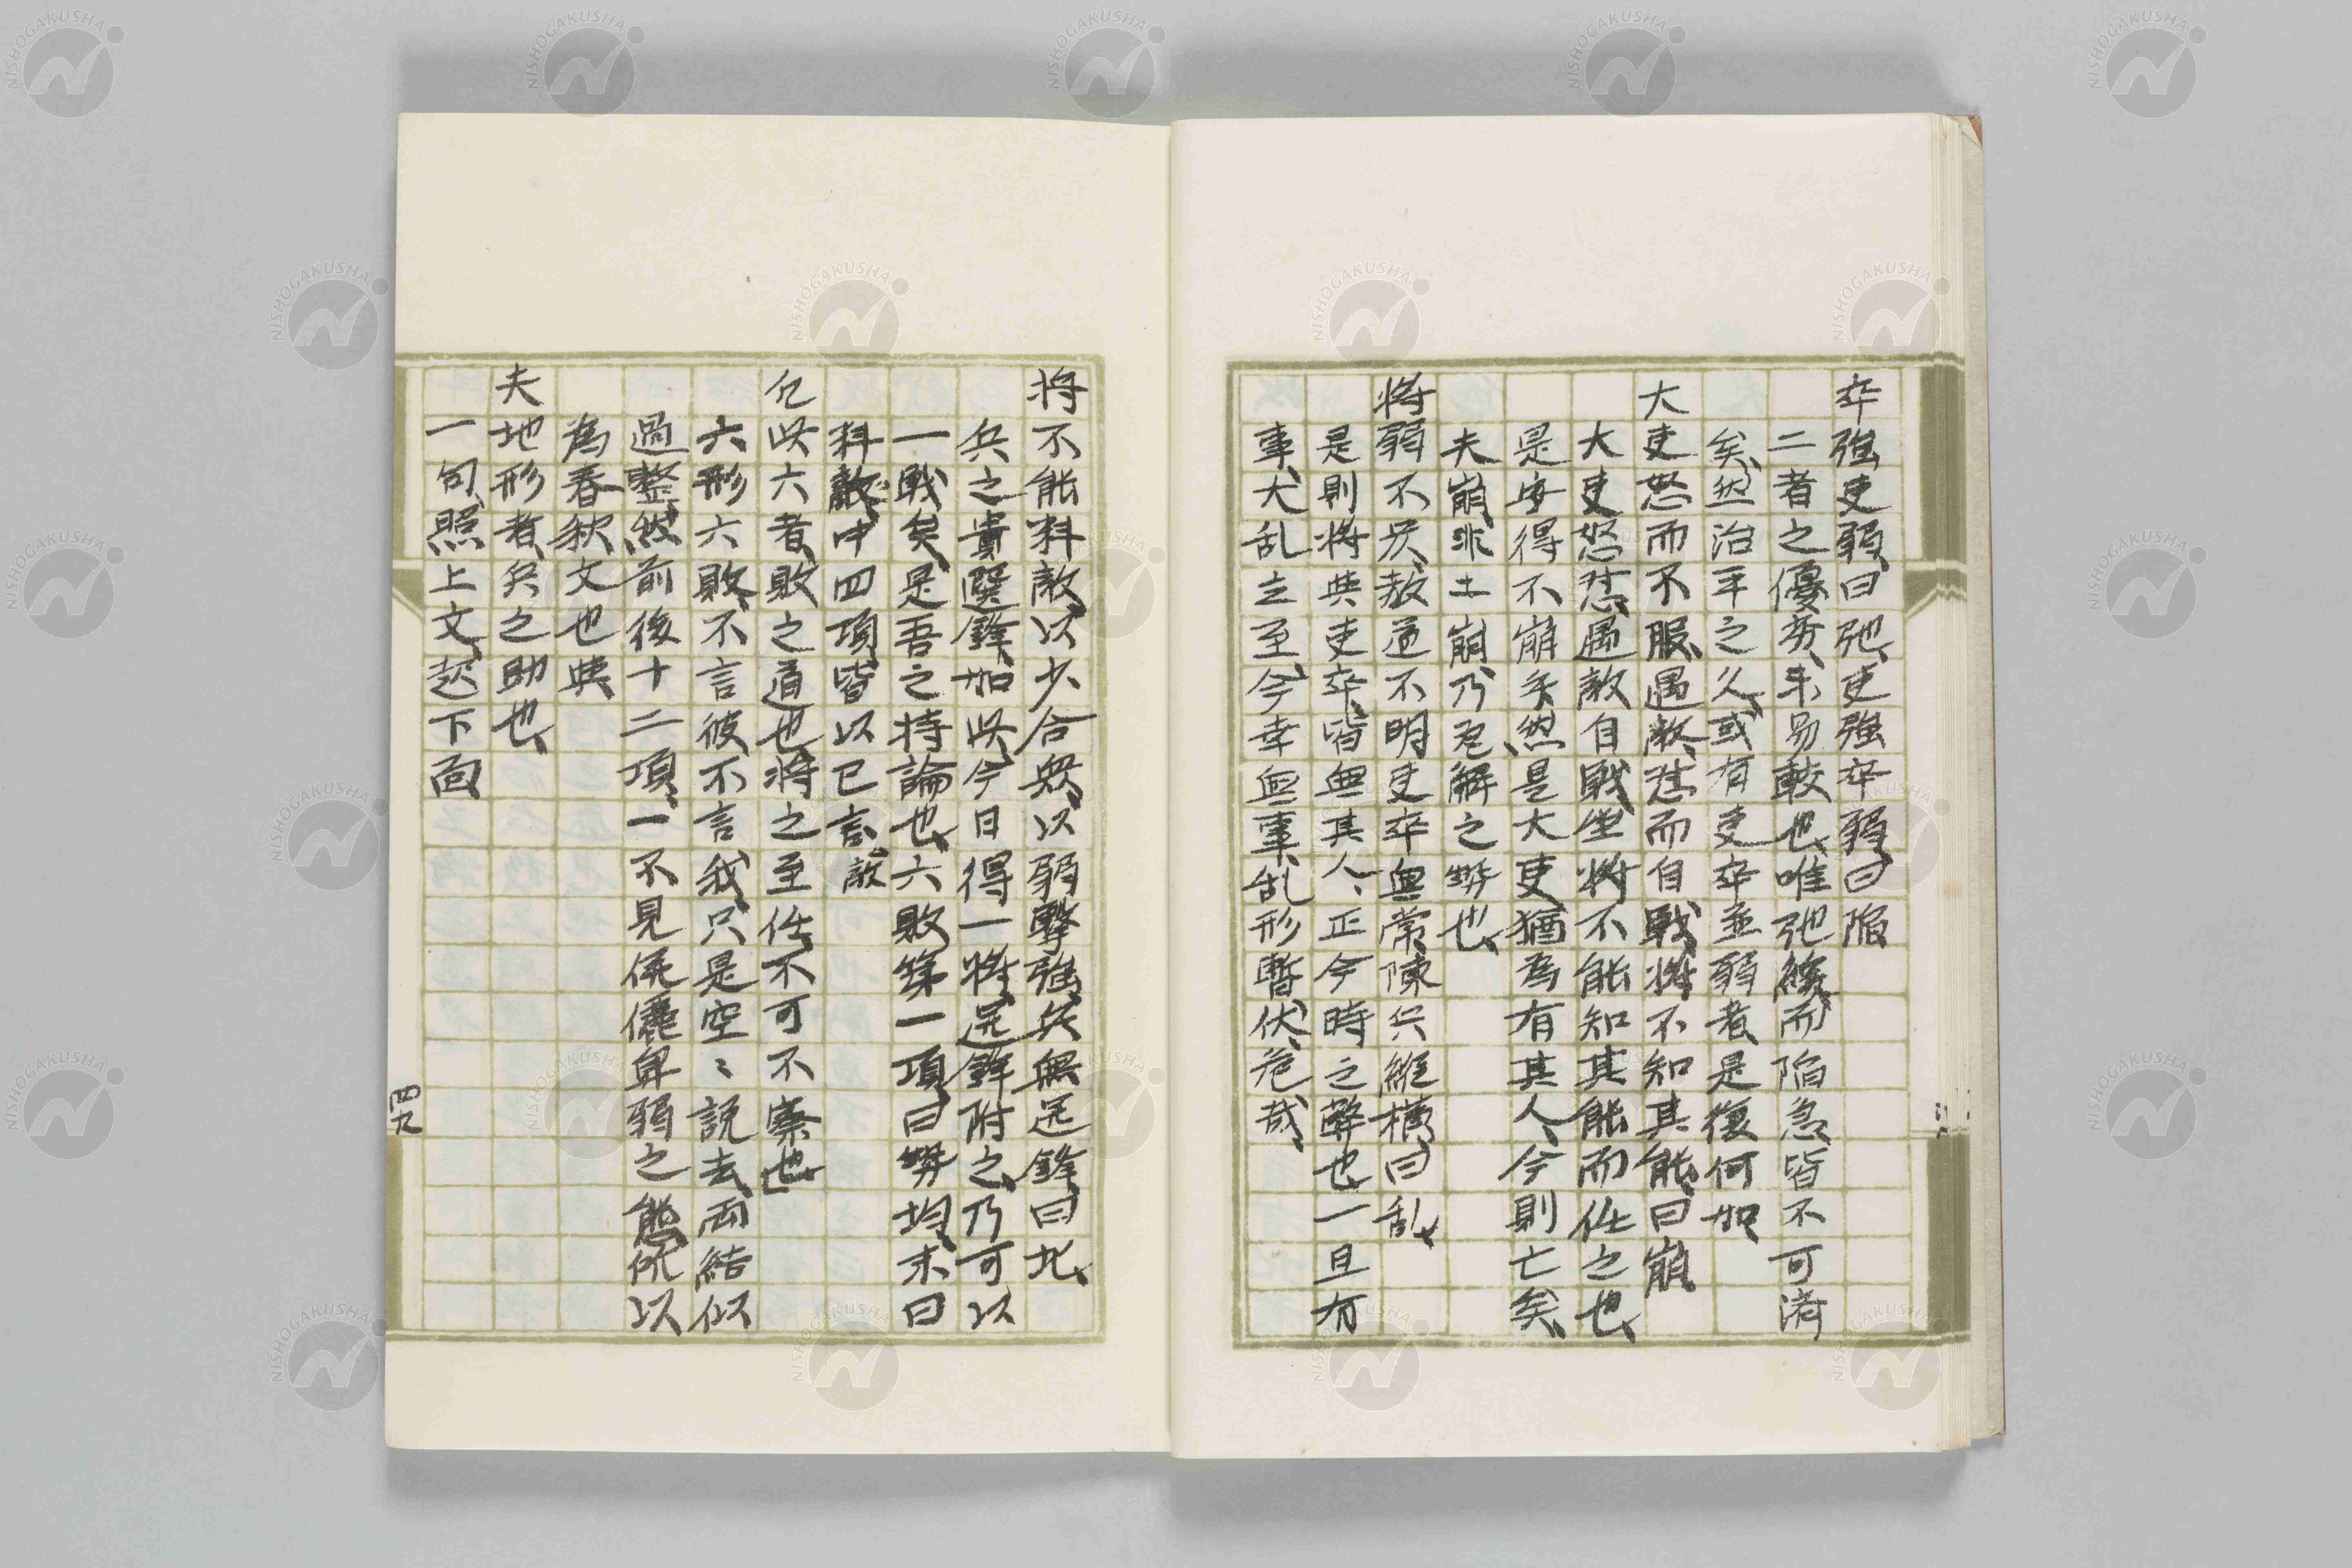 卒強吏弱、曰弛、吏強卒弱曰陥
二者之優劣、未易較也、唯弛緩、而陥急、皆不可済
矣、然治平之久、或有吏卒並弱者、是復何如
大吏怒而不服、遇敵、怼而自戦、将不知其能、曰崩、
大吏怒怼、遇敵自戦、坐将不能知其能而任之也、
是安得不崩乎、然是大吏猶為有其人、今則亡矣、
夫崩非土崩、乃瓦解之勢也、
将弱不严、教道不明吏卒無常陳兵縦横曰乱、
是則将与吏卒、皆無其人、正今時之弊也一旦有
事、大乱立至、今幸無事、乱形暫伏、危哉、
将不能料敵、以少合衆、以弱撃強、兵無选鋒、曰北、
兵之貴選鋒、如此、今日得一将、选鋒附之、乃可以
一戦矣、是吾之持論也、六敗第一項曰勢均、末曰
料敵、中四項、皆以已言、敵
凡此六者、敗之道也、将之至任、不可不察也
六形六敗、不言彼不言我、只是空〻説去、両結似
過整、然前後十二項、一不見俶儷卑弱之態、所以
為春秋文也與
夫地形者、兵之助也、
一句、照上文、起下面
四九
NISHOGAKUSHA